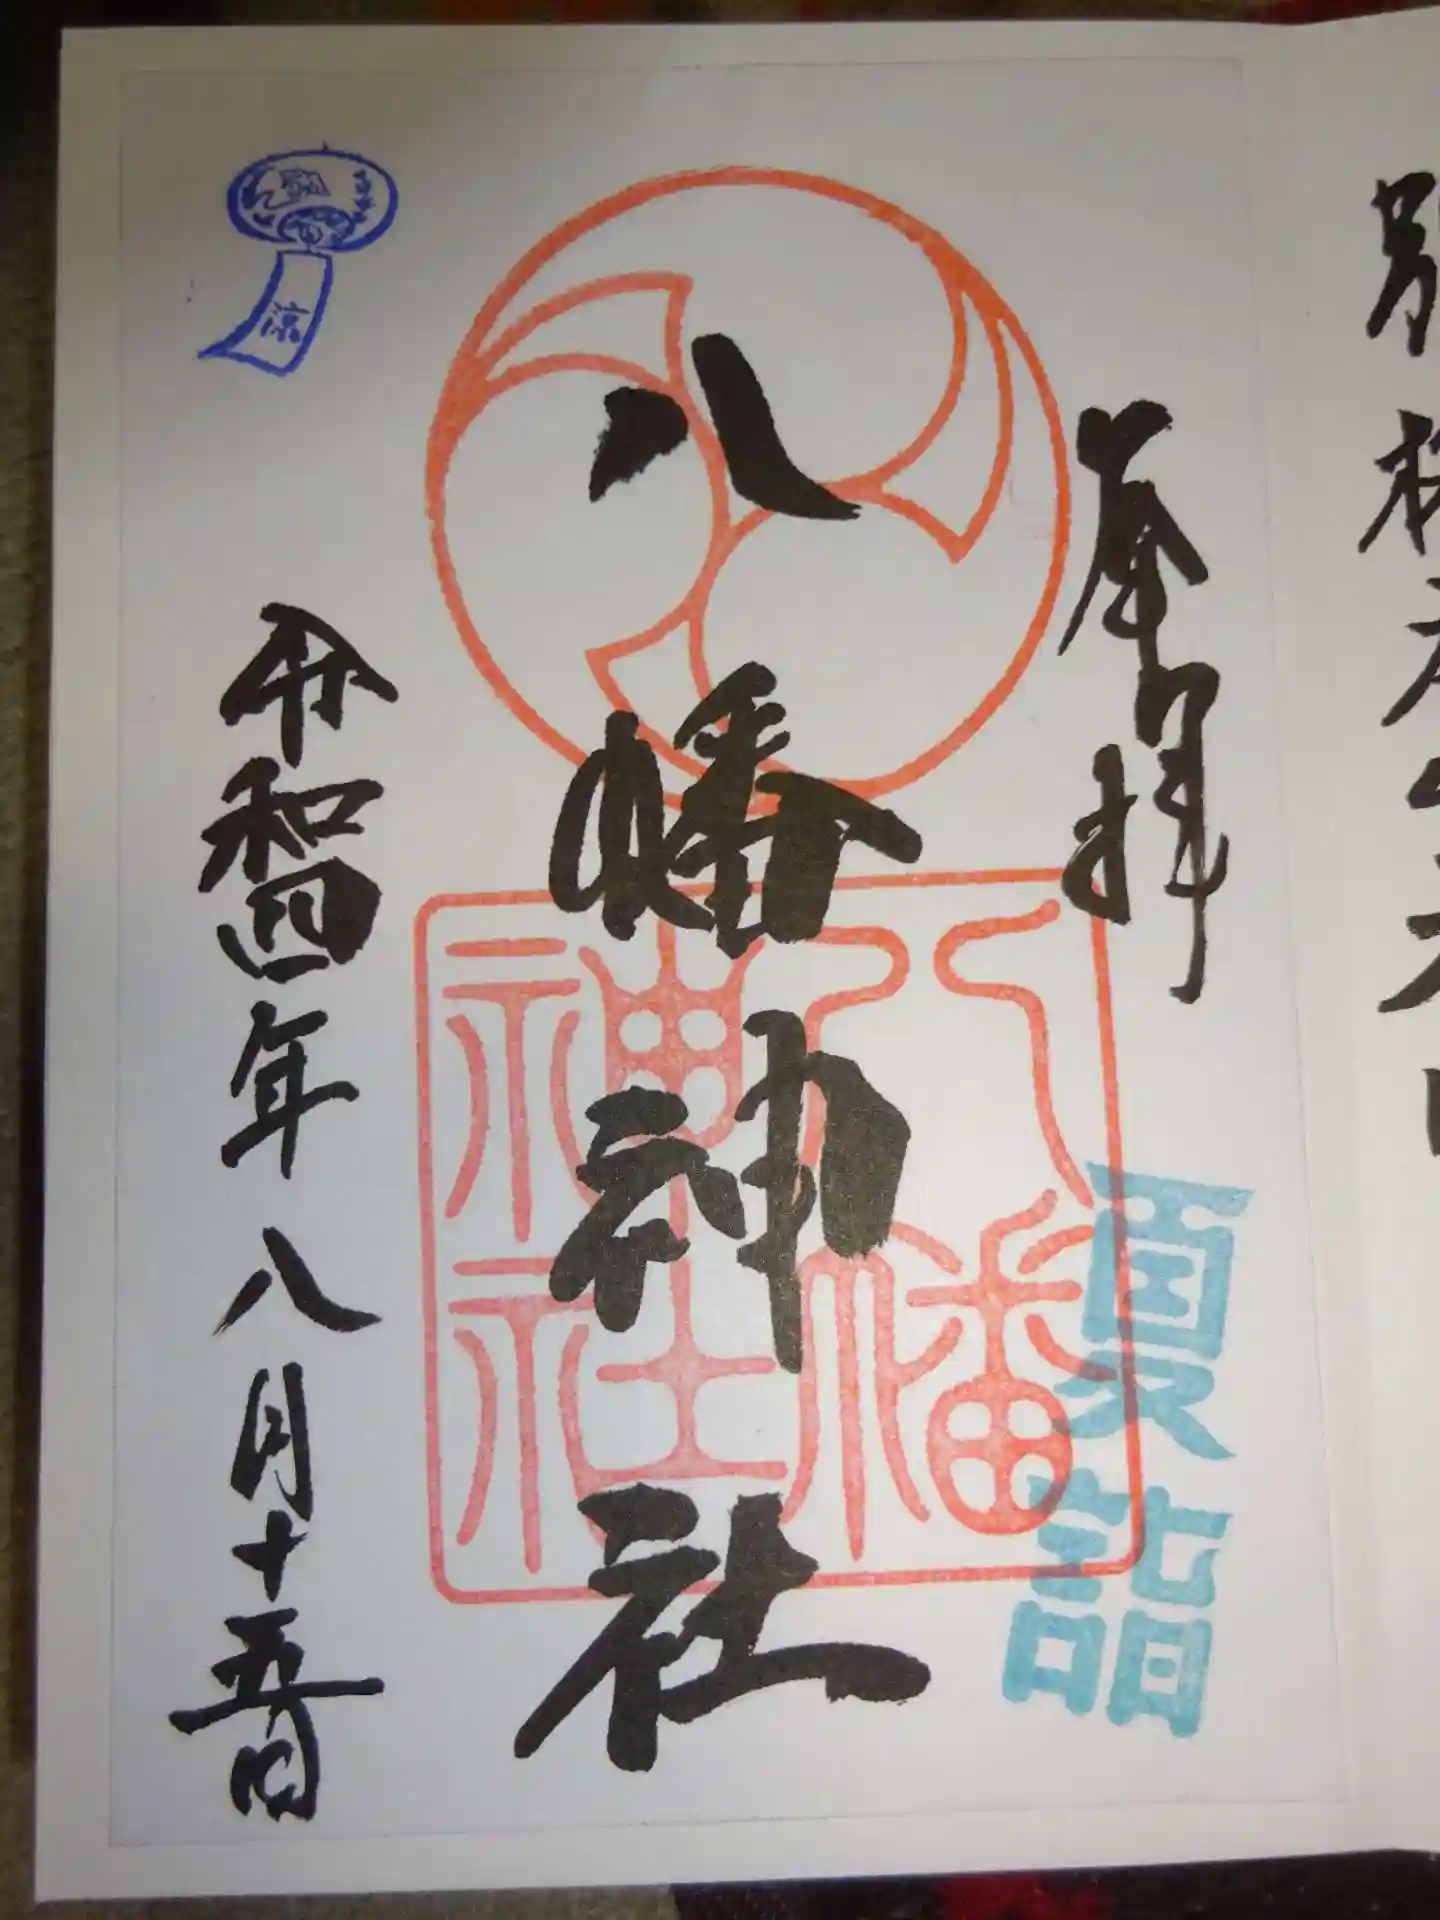 奉拝
夏詣
八幡神社
八幡
神社
令和四年八月十五日
涼